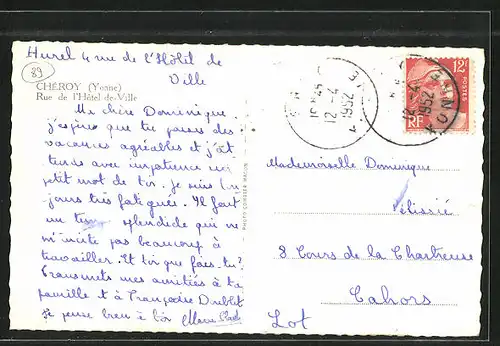 Hurel 4 rue de l'Hôtel de
Ville
89
CHÉROY (Yonne)
Rue de l'Hôtel-de-Ville
Ma chère Dominique
j'espère que tu passes des
vacances agréables et j'at
tends avec impatience un
petit mot de toi. Je suis tou
jours très fatiguée. Il fait
un temps splendide qui ne
m'incite pas beaucoup à
travailler. Et toi que fais-tu?
Transmets mes amitiés à ta
famille et à Françoise Doublet
Je pense bien à toi
PHOTO COMBIER MACON
12-4
1952
12F
POSTES
RF
YONNE
12-4
1952
Mademoiselle Dominique
Pélissié
8 Cours de la Chartreuse
Cahors
Lot